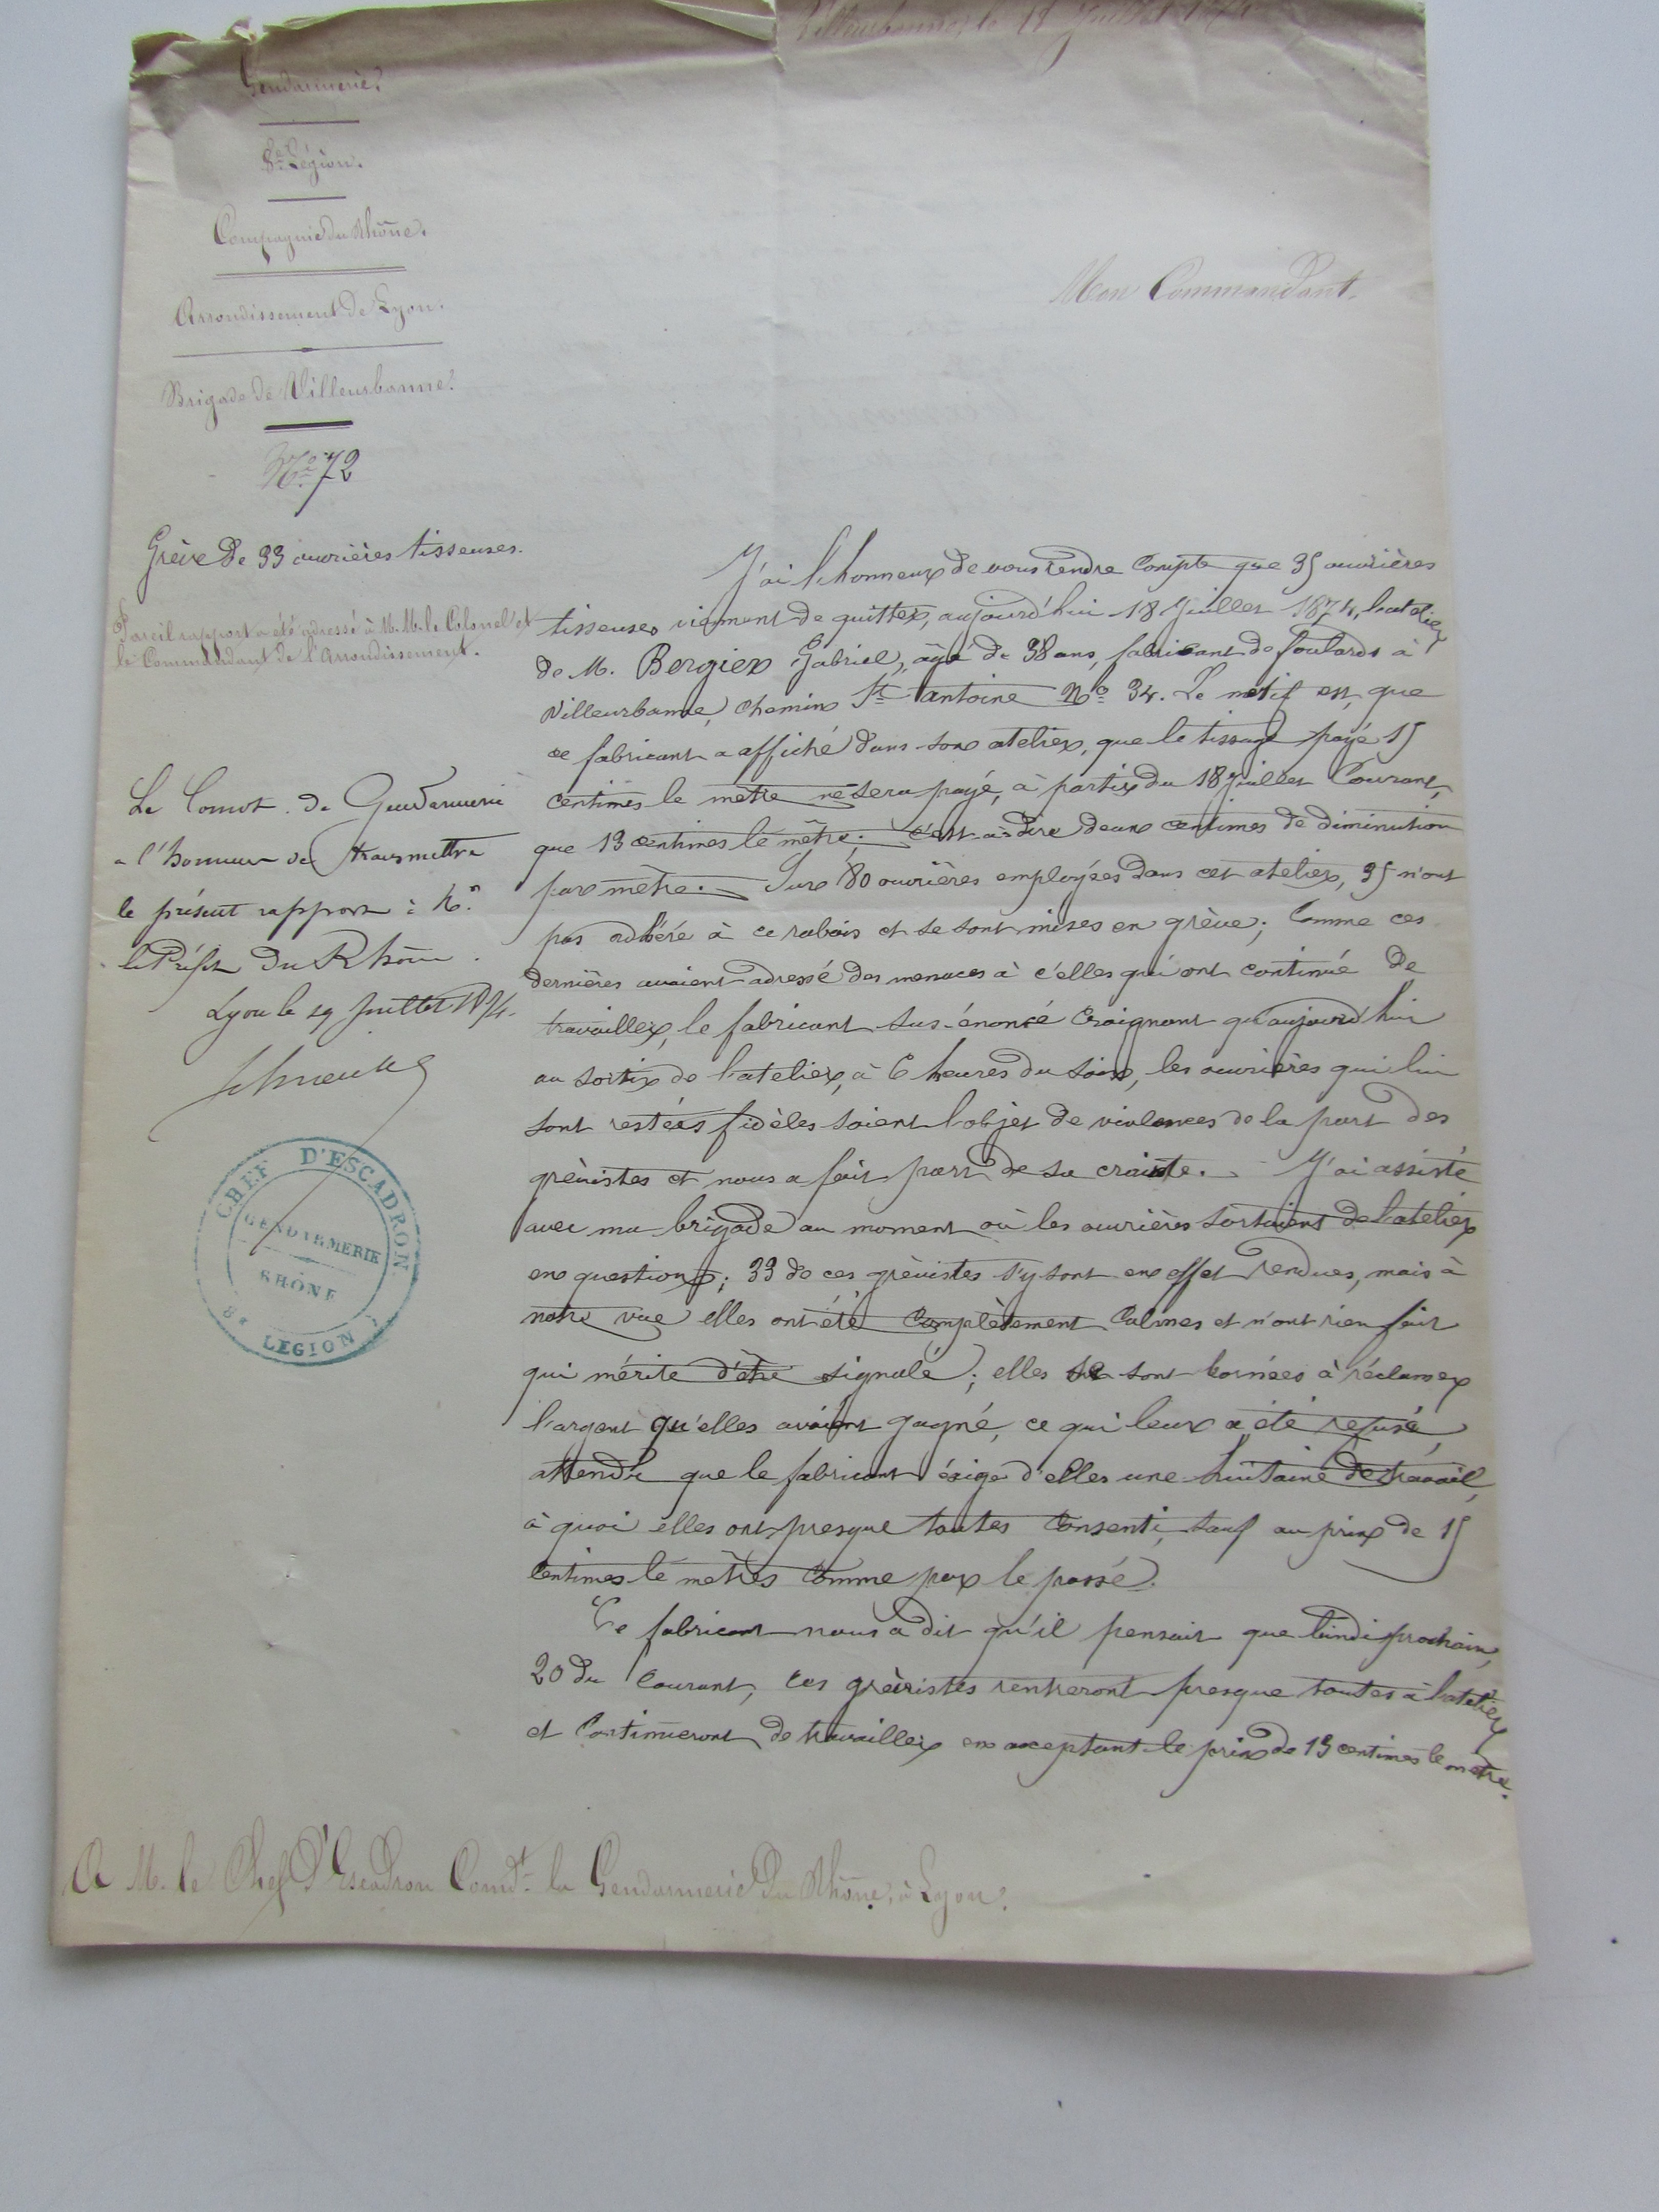 Villeurbanne, le 18 Juillet 1874
Gendarmerie.
8e Légion.
Compagnie du Rhône.
Arrondissement de Lyon.
Brigade de Villeurbanne.
No. 72
Mon Commandant.
Grève de 33 ouvrières tisseuses.
Pareil rapport a été adressé à M.M. le Colonel et
le Commandant de l'Arrondissement.
Le Comdt. de Gendarmerie
a l'honneur de transmettre
le présent rapport à Mr.
le Préfet du Rhône.
Lyon le 19 Juillet 1874.
CHEF D'ESCADRON
GENDARMERIE
RHÔNE
8e LEGION
J'ai l'honneur de vous rendre Compte que 35 ouvrières
tisseuses viennent de quitter, aujourd'hui 18 Juillet 1874, l'atelier
de M. Bergier Gabriel, âgé de 38 ans, fabricant de foulards à
Villeurbanne, Chemin St. antoine No. 34. Le motif est, que
ce fabricant a affiché dans son atelier, que le tissage payé 15
centimes le mètre ne sera payé, à partir du 18 Juillet Courant,
que 13 centimes le mètre; c'est-à-dire deux centimes de diminution
par mètre. Sur 80 ouvrières employées dans cet atelier, 35 n'ont
pas adhéré à ce rabais et se sont mises en grève; Comme ces
dernières avaient adressé des menaces à c'elles qui ont continué de
travailler, le fabricant sus-énoncé craignant qu'aujourd'hui
au sortir de l'atelier, à 6 heures du soir, les ouvrières qui lui
sont restées fidèles soient l'objet de violences de la part des
grèvistes et nous a fait part de sa crainte. J'ai assisté
avec ma brigade au moment où les ouvrières sortaient de l'atelier
en question; 33 de ces grèvistes s'y sont en effet rendues, mais à
notre vue elles ont été Complètement Calmes et n'ont rien fait
qui mérite d'être signalé; elles se sont bornées à réclamer
l'argent qu'elles avaient gagné, ce qui leur a été refusé,
attendu que le fabricant éxige d'elles une huitaine de travail,
à quoi elles ont presque toutes Consenti, sauf au prix de 15
Centimes le mètres Comme par le passé.
Ce fabricant nous a dit qu'il pensait que lundi prochain,
20 du Courant, ces grèvistes rentreront presque toutes à l'atelier
et Continueront de travailler en acceptant le prix de 13 centimes le mètre.
A M. le Chef d'Escadron Comdt. la Gendarmerie du Rhône, à Lyon.